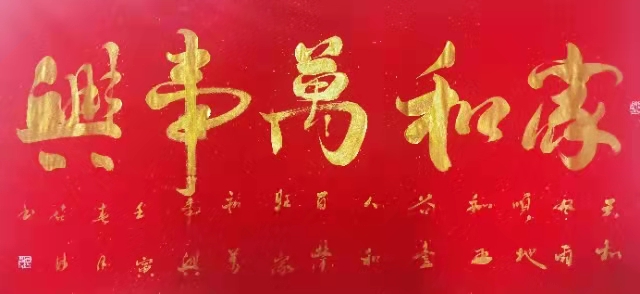 家和萬事興
天和風雨順地和五谷豐人和百業旺家和萬事興壬寅春月